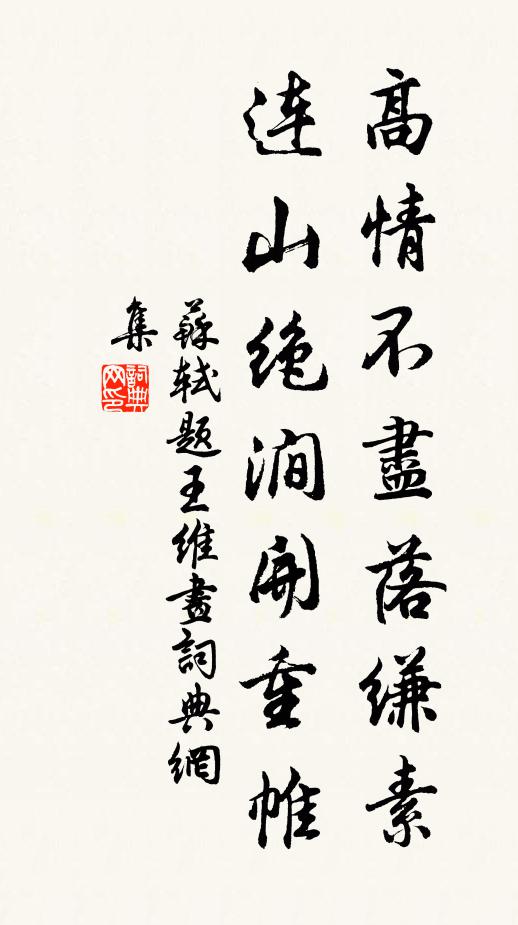 高情不盡落縑素
連山絶澗開重帷
蘇軾題王維畫詞典網
集
詞典网印